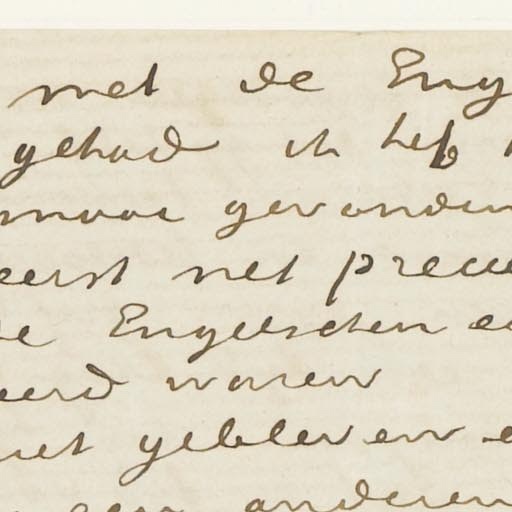 met de Eng
gehad ik heb
maar gevonden
eerst net precie
de Engelschen e
eerd waren
net gebleven e
een anderen